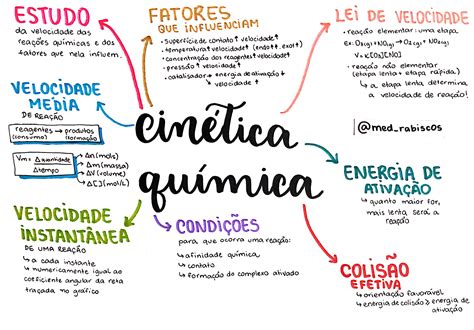 ESTUDO
da velocidade das
reações químicas e dos
fatores que nela influem.
FATORES
QUE INFLUENCIAM
• superfície de contato ↑ velocidade ↑
• temperatura ↑ velocidade ↑ (endot. e exot)
• concentração dos reagentes ↑ velocidade ↑
• pressão ↑ velocidade ↑
• catalisador → energia de ativação ↓
velocidade ↑
LEI DE VELOCIDADE
• reação elementar: uma etapa
Ex: O3(g) + NO(g) → O2(g) + NO2(g)
V = K[O3][NO]
• reação não elementar
(etapa lenta + etapa rápida.)
↳ a etapa lenta determina
a velocidade da reação!
VELOCIDADE
MÉDIA
DE REAÇÃO
reagentes → produtos
(consumo) (formação)
Vm = Δ quantidade
Δ tempo
Δn (mols)
Δm (massa)
ΔV (volume)
Δ[ ] (mol/L)
cinética
química
@med_rabiscos
ENERGIA DE
ATIVAÇÃO
↳ quanto maior for,
mais lenta será a
reação
VELOCIDADE
INSTANTÂNEA
DE UMA REAÇÃO
↳ a cada instante
↳ numericamente igual ao
coeficiente angular da reta
traçada no gráfico
CONDIÇÕES
para que ocorra uma reação:
↳ afinidade química
↳ contato
↳ formação do complexo ativado
COLISÃO
EFETIVA
↳ orientação favorável
↳ energia de colisão ≥ energia de
ativação